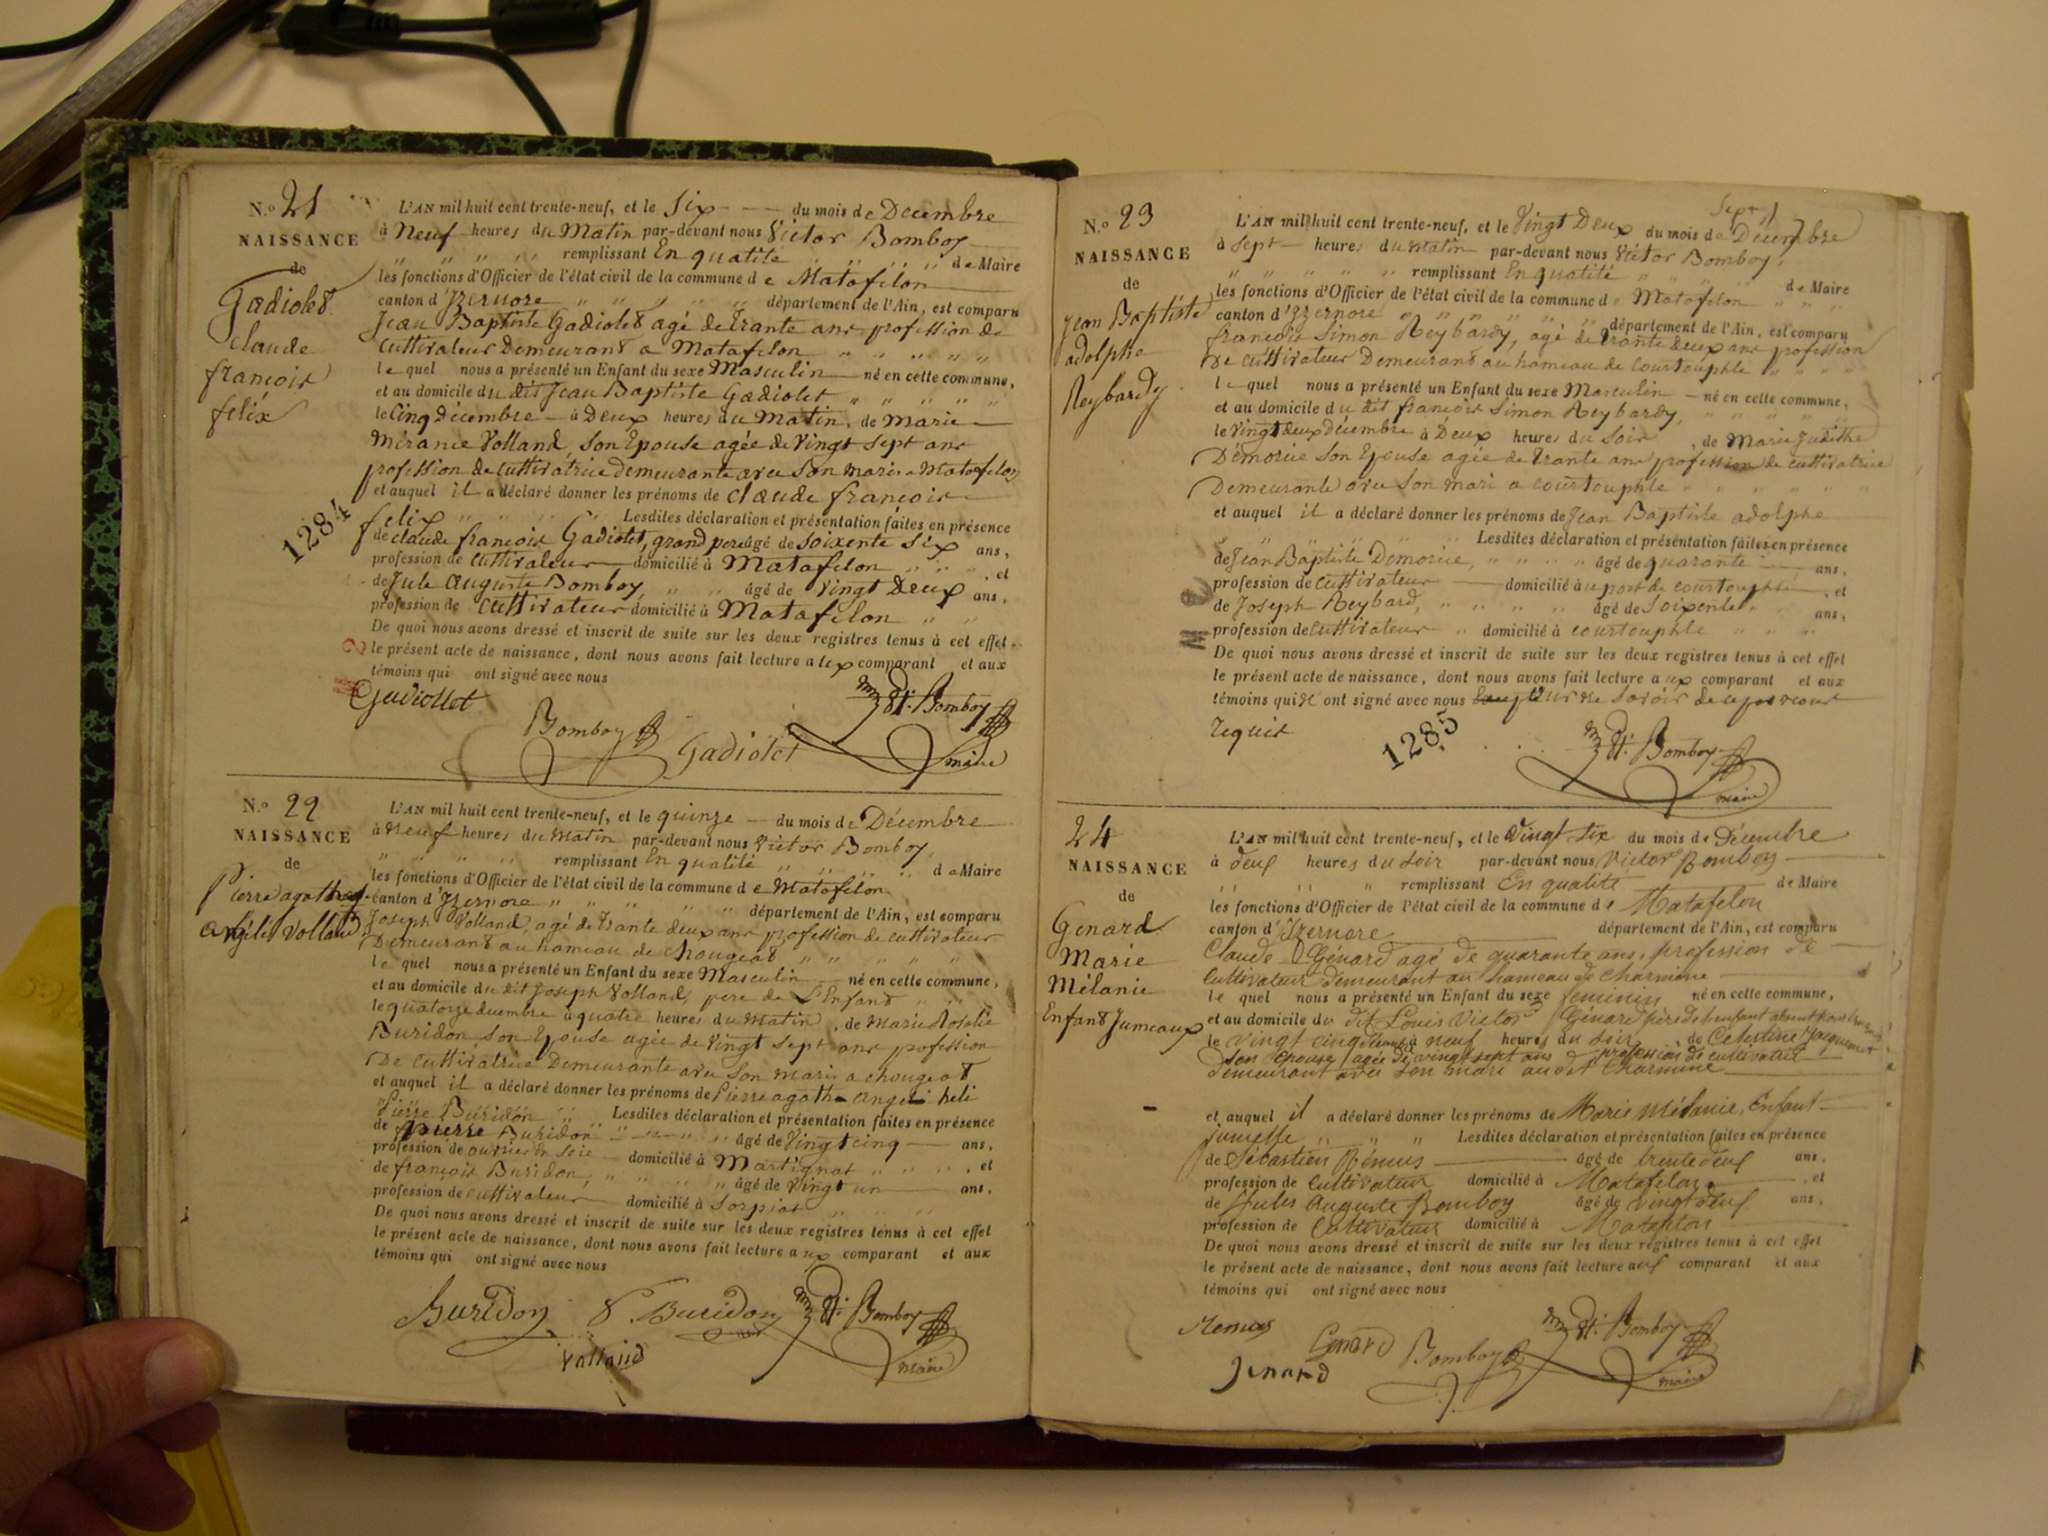 N.o 21
NAISSANCE
de
Gadiolet
claude
françois
felix
L'AN mil huit cent trente-neuf, et le Six du mois de Decembre
à Neuf heures du Matin par-devant nous Victor Bomboy
remplissant En qualité de Maire
les fonctions d'Officier de l'état civil de la commune de Matafilon
canton d'Izernore département de l'Ain, est comparu
Jean Baptiste Gadiolet agé de trante ans profession de
cultivateur Demeurant a Matafelon
le quel nous a présenté un Enfant du sexe Masculin né en cette commune,
et au domicile du dit Jean Baptiste Gadiolet
le Cinq décembre à Deux heures du Matin, de Marie
Mirance Volland, son Epouse agée de vingt sept ans
profession de cultivatrice demeurante avec son mari a Matafelon
et auquel il a déclaré donner les prénoms de claude françois
felix Lesdites déclaration et présentation faites en présence
de claude françois Gadiolet, grand pere âgé de soixente six ans,
profession de cultivateur domicilié à Matafelon, et
de Jule auguste Bomboy, âgé de vingt Deux ans,
profession de cultivateur domicilié à Matafelon
De quoi nous avons dressé et inscrit de suite sur les deux registres tenus à cet effet
le présent acte de naissance, dont nous avons fait lecture aux comparant et aux
témoins qui ont signé avec nous
1284
Gadiollet
Bomboy Gadiolet Bomboy
maire
N.o 22
NAISSANCE
de
Pierre agathe
Volland
L'AN mil huit cent trente-neuf, et le quinze du mois de Décembre
à neuf heures du matin par-devant nous Victor Bomboy,
remplissant En qualité de Maire
les fonctions d'Officier de l'état civil de la commune de Matafilon
canton d'Izernore département de l'Ain, est comparu
Joseph Volland, agé de trante deux ans profession de cultivateur
Demeurant au hameau de chougeat
le quel nous a présenté un Enfant du sexe Masculin né en cette commune,
et au domicile du dit Joseph Volland, pere de L'Enfant
le quatorze decembre a quatre heures du Matin, de Marie Rosalie
Buridon son Epouse agée de vingt sept ans profession
De cultivatrice Demeurante avec son mari a chougeat
et auquel il a déclaré donner les prénoms de Pierre agathe
Pierre Buridon Lesdites déclaration et présentation faites en présence
de pierre Buridon âgé de vingt cinq ans,
profession de ouvrier en soie domicilié à Martignat, et
de françois Buridon, âgé de vingt un ans,
profession de cultivateur domicilié à Sorpiat
De quoi nous avons dressé et inscrit de suite sur les deux registres tenus à cet effet
le présent acte de naissance, dont nous avons fait lecture aux comparant et aux
témoins qui ont signé avec nous
Buridon P. Buridon Bomboy
Volland maire
N.o 23
NAISSANCE
de
jean Baptiste
adolphe
Reybardy
L'AN mil huit cent trente-neuf, et le Vingt Deux du mois de Décembre
à Sept heures du Matin par-devant nous Victor Bomboy,
remplissant En qualité de Maire
les fonctions d'Officier de l'état civil de la commune de Matafelon
canton d'Izernore département de l'Ain, est comparu
francois Simon Reybardy, agé de trante deux ans profession
De cultivateur Demeurant au hameau de courtouphle
le quel nous a présenté un Enfant du sexe Masculin né en cette commune,
et au domicile du dit françois Simon Reybardy,
le vingt deux Décembre à Deux heures du Soir, de Marie Judithe
Démorice son Epouse agée de trante ans profession de cultivatrice
Demeurante avec son mari a courtouphle
et auquel il a déclaré donner les prénoms de Jean Baptiste adolphe
Lesdites déclaration et présentation faites en présence
de Jean Baptiste Demorice, âgé de quarante ans,
profession de cultivateur domicilié à u port de courtouphle, et
de Joseph Reybard, âgé de Soixente ans,
profession de cultivateur domicilié à courtouphle
De quoi nous avons dressé et inscrit de suite sur les deux registres tenus à cet effet
le présent acte de naissance, dont nous avons fait lecture aux comparant et aux
témoins qui ont signé avec nous
requis
1285
Bomboy
maire
24
NAISSANCE
de
Genard
Marie
Mélanie
Enfant Jumeaux
L'AN mil huit cent trente-neuf, et le Vingt Six du mois de Décembre
à deux heures du soir par-devant nous Victor Bomboy
remplissant En qualité de Maire
les fonctions d'Officier de l'état civil de la commune de Matafelon
canton d'Izernore département de l'Ain, est comparu
Claude Génard agé de quarante ans, profession de
Cultivateur demeurant au hameau de Charmine
le quel nous a présenté un Enfant du sexe feminin né en cette commune,
et au domicile du dit Louis Victor Génard père de l'enfant absent
le vingt cinq à neuf heures du soir de Célestine Jacquemet
son épouse agée de vingt sept ans profession de cultivatrice
demeurant avec son mari audit Charmine
et auquel il a déclaré donner les prénoms de Marie Mélanie, Enfant
jumelle Lesdites déclaration et présentation faites en présence
de Sébastien Rémus âgé de trente deux ans,
profession de Cultivateur domicilié à Matafelon, et
de Jules Auguste Bomboy âgé de vingt deux ans,
profession de Cultivateur domicilié à Matafelon
De quoi nous avons dressé et inscrit de suite sur les deux registres tenus à cet effet
le présent acte de naissance, dont nous avons fait lecture aux comparant et aux
témoins qui ont signé avec nous
Remus Genard Bomboy Bomboy
Jenard maire